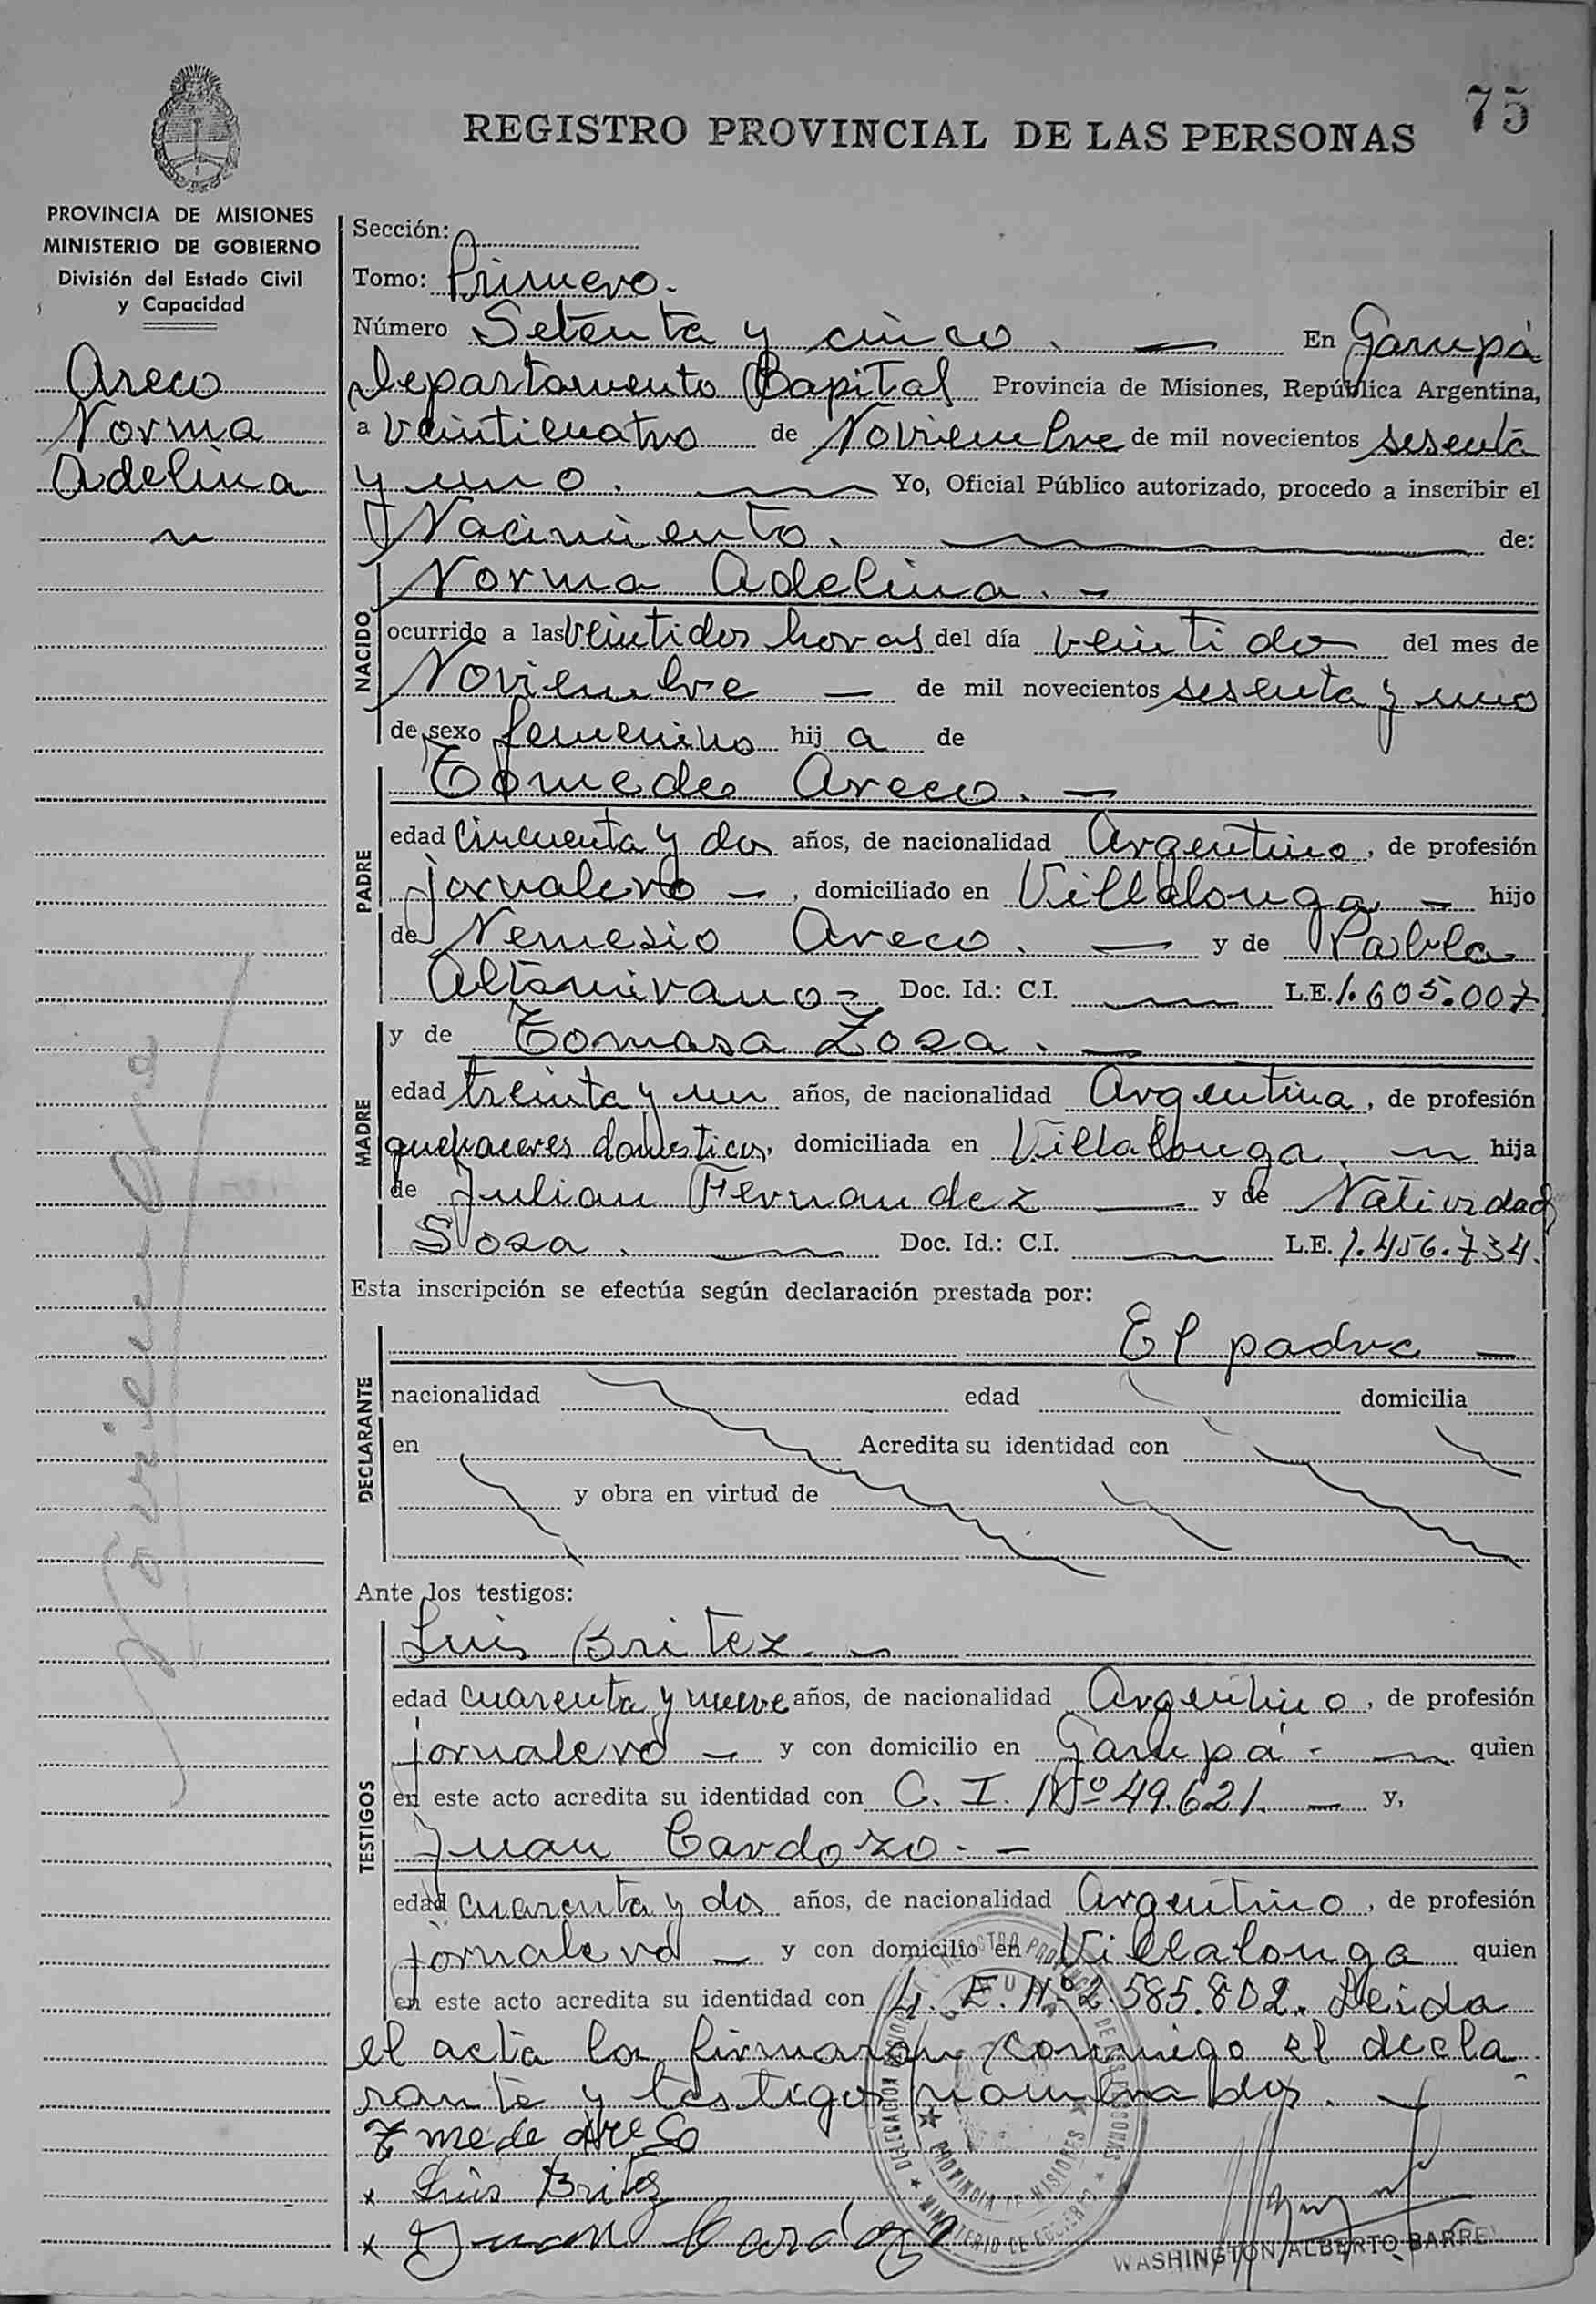 75
REGISTRO PROVINCIAL DE LAS PERSONAS
PROVINCIA DE MISIONES
MINISTERIO DE GOBIERNO
División del Estado Civil
y Capacidad
Areco
Norma
Adelina
Noviembre
Sección:
Tomo: Primero.-
Número Setenta y cinco. — En Garupá
Departamento Capital Provincia de Misiones, República Argentina,
a veinticuatro de Noviembre de mil novecientos sesenta
y uno. — Yo, Oficial Público autorizado, procedo a inscribir el
Nacimiento. — de:
NACIDO
Norma Adelina. -
ocurrido a las veintidos horas del día veintidos del mes de
Noviembre — de mil novecientos sesenta y uno
de sexo femenino hij a de
PADRE
Tomedes Areco. —
edad cincuenta y dos años, de nacionalidad Argentino, de profesión
jornalero —, domiciliado en Villalonga - hijo
de Nemesio Areco. — y de Pabla
Altamirano - Doc. Id.: C.I. — L.E. 1.605.007
MADRE
y de Tomasa Zosa. —
edad treinta y un años, de nacionalidad Argentina, de profesión
quehaceres domesticos, domiciliada en Villalonga. — hija
de Julian Fernandez — y de Natividad
Sosa. — Doc. Id.: C.I. — L.E. 1.456.734.
Esta inscripción se efectúa según declaración prestada por:
DECLARANTE
El padre —
nacionalidad edad domicilia
en Acredita su identidad con
y obra en virtud de
Ante los testigos:
TESTIGOS
Luis Britez. -
edad cuarenta y nueve años, de nacionalidad Argentino, de profesión
jornalero — y con domicilio en Garupá - — quien
en este acto acredita su identidad con C. I. Nº 49.621. — y,
Juan Cardozo. -
edad cuarenta y dos años, de nacionalidad Argentino, de profesión
jornalero — y con domicilio en Villalonga quien
en este acto acredita su identidad con L. E. Nº 2.585.802. Leida
el acta la firmaron conmigo el decla
rante y testigos nombrados. —
mede Areco
x Luis Britez
x Juan Cardozo
PROVINCIA DE MISIONES
MINISTERIO DE GOBIERNO
WASHINGTON ALBERTO BARRE